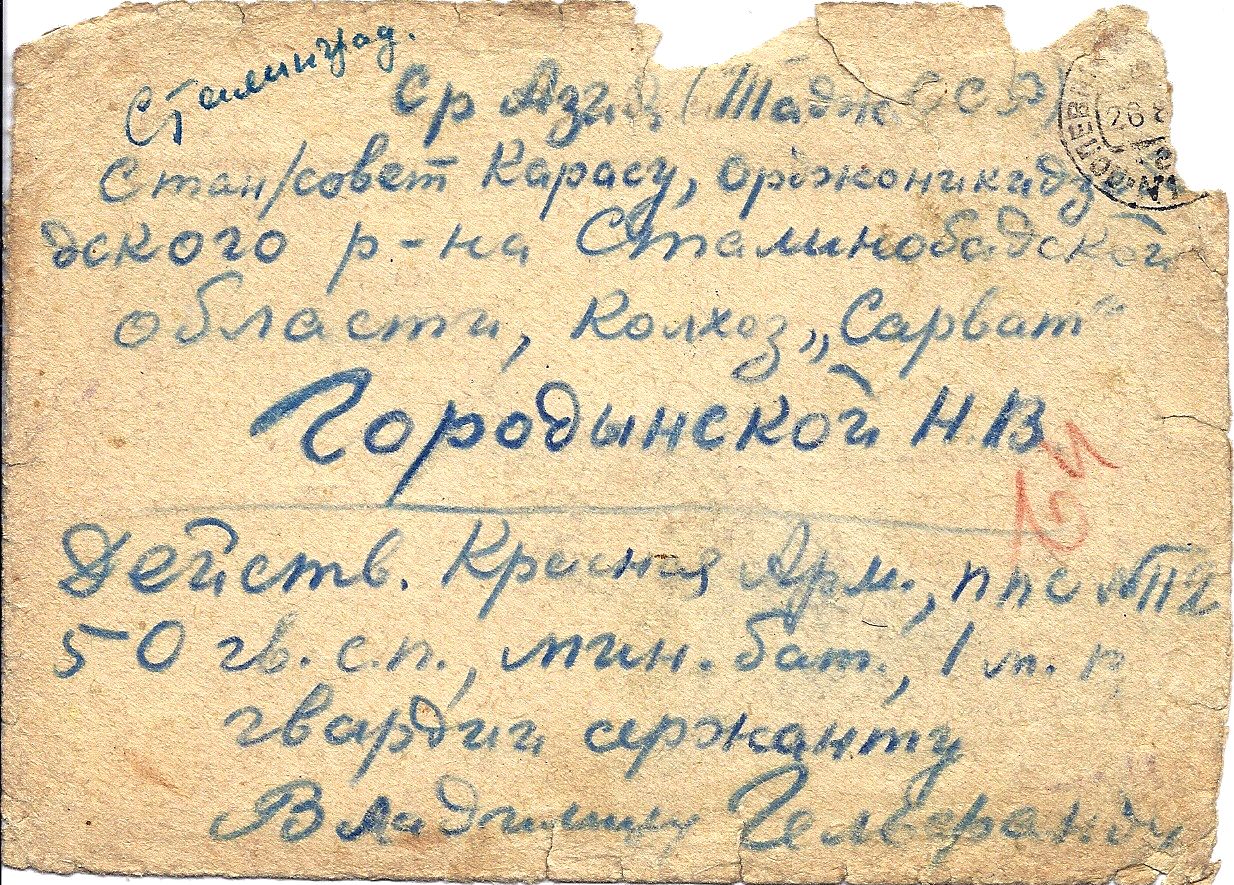 Сталинград.
Ср Азия (Тадж ССР)
Стан/совет Карасу, орджоникидзев
дского р-на Сталинобадской
области, Колхоз „Сарват“
Городынской Н.В
Действ. Красная Арм., ппс
50 гв. с.п., мин. бат., 1 м. р
гвардии сержанту
Владимиру Гельфанду
26